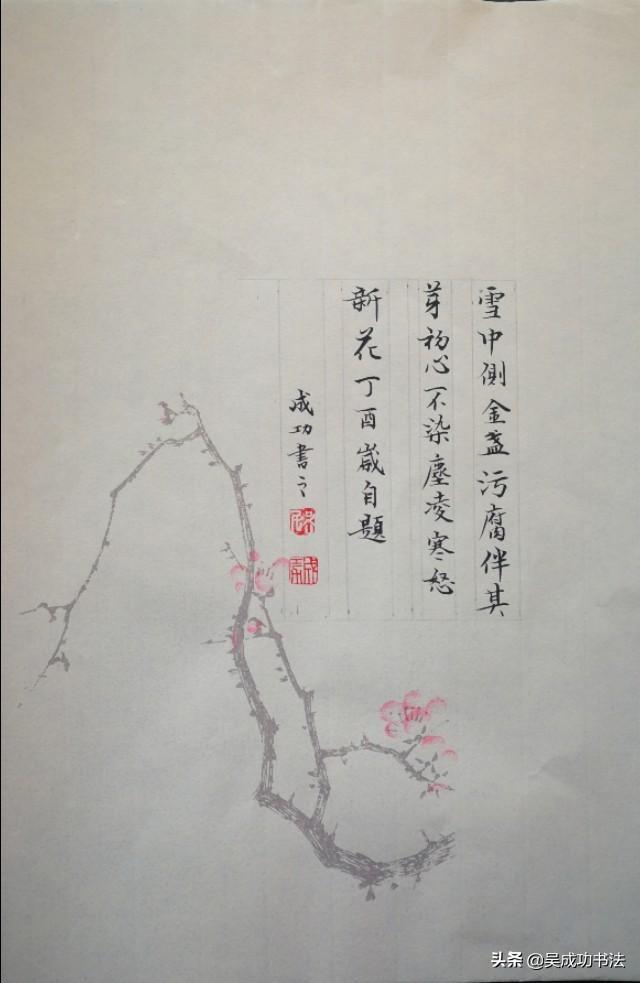 雪中側金盞污腐伴其
芽初心不染塵凌寒怒
新花丁酉歲自題
成功書之
头条@吴成功书法